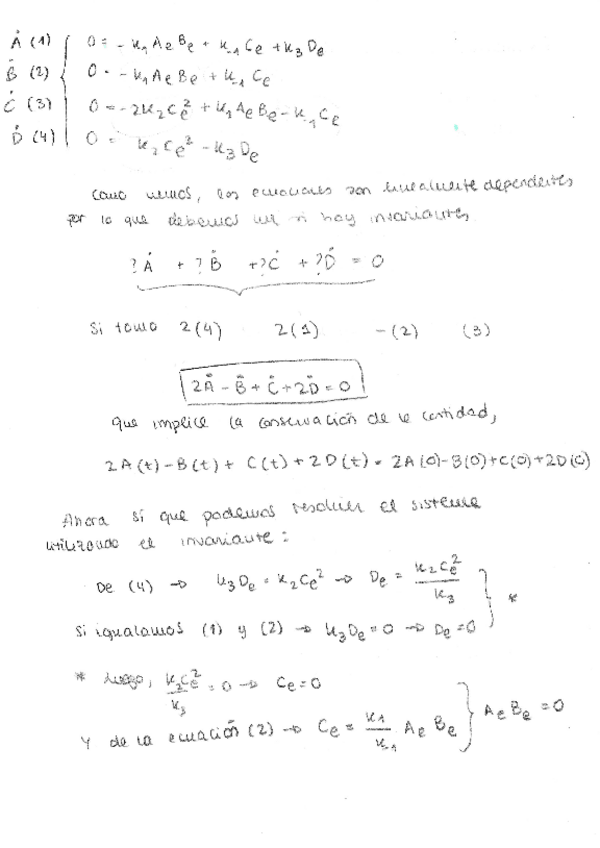 Ȧ (1) 0 = -k₁ A₂ Bₑ + k₋₁ Cₑ + k₃ Dₑ
Ḃ (2) 0 = -k₁ Aₑ Bₑ + k₋₁ Cₑ
Ċ (3) 0 = -2k₂ Cₑ² + k₁ Aₑ Bₑ - k₋₁ Cₑ
Ḋ (4) 0 = k₂ Cₑ² - k₃ Dₑ
Como vemos, las ecuaciones son linealmente dependientes
por lo que debemos ver si hay invariantes
? Ȧ + ? Ḃ + ? Ċ + ? Ḋ = 0
Si tomo 2(4) 2(1) -(2) (3)
2Ȧ - Ḃ + Ċ + 2Ḋ = 0
Que implica la conservación de la cantidad,
2A(t) - B(t) + C(t) + 2D(t) = 2A(0) - B(0) + C(0) + 2D(0)
Ahora sí que podemos resolver el sistema
utilizando el invariante:
De (4) → k₃ Dₑ = k₂ Cₑ² → Dₑ = k₂ Cₑ² / k₃
Si igualamos (1) y (2) → k₃ Dₑ = 0 → Dₑ = 0 } *
* Luego, k₂ Cₑ² / k₃ = 0 → Cₑ = 0
Y de la ecuación (2) → Cₑ = k₁ / k₋₁ Aₑ Bₑ } Aₑ Bₑ = 0